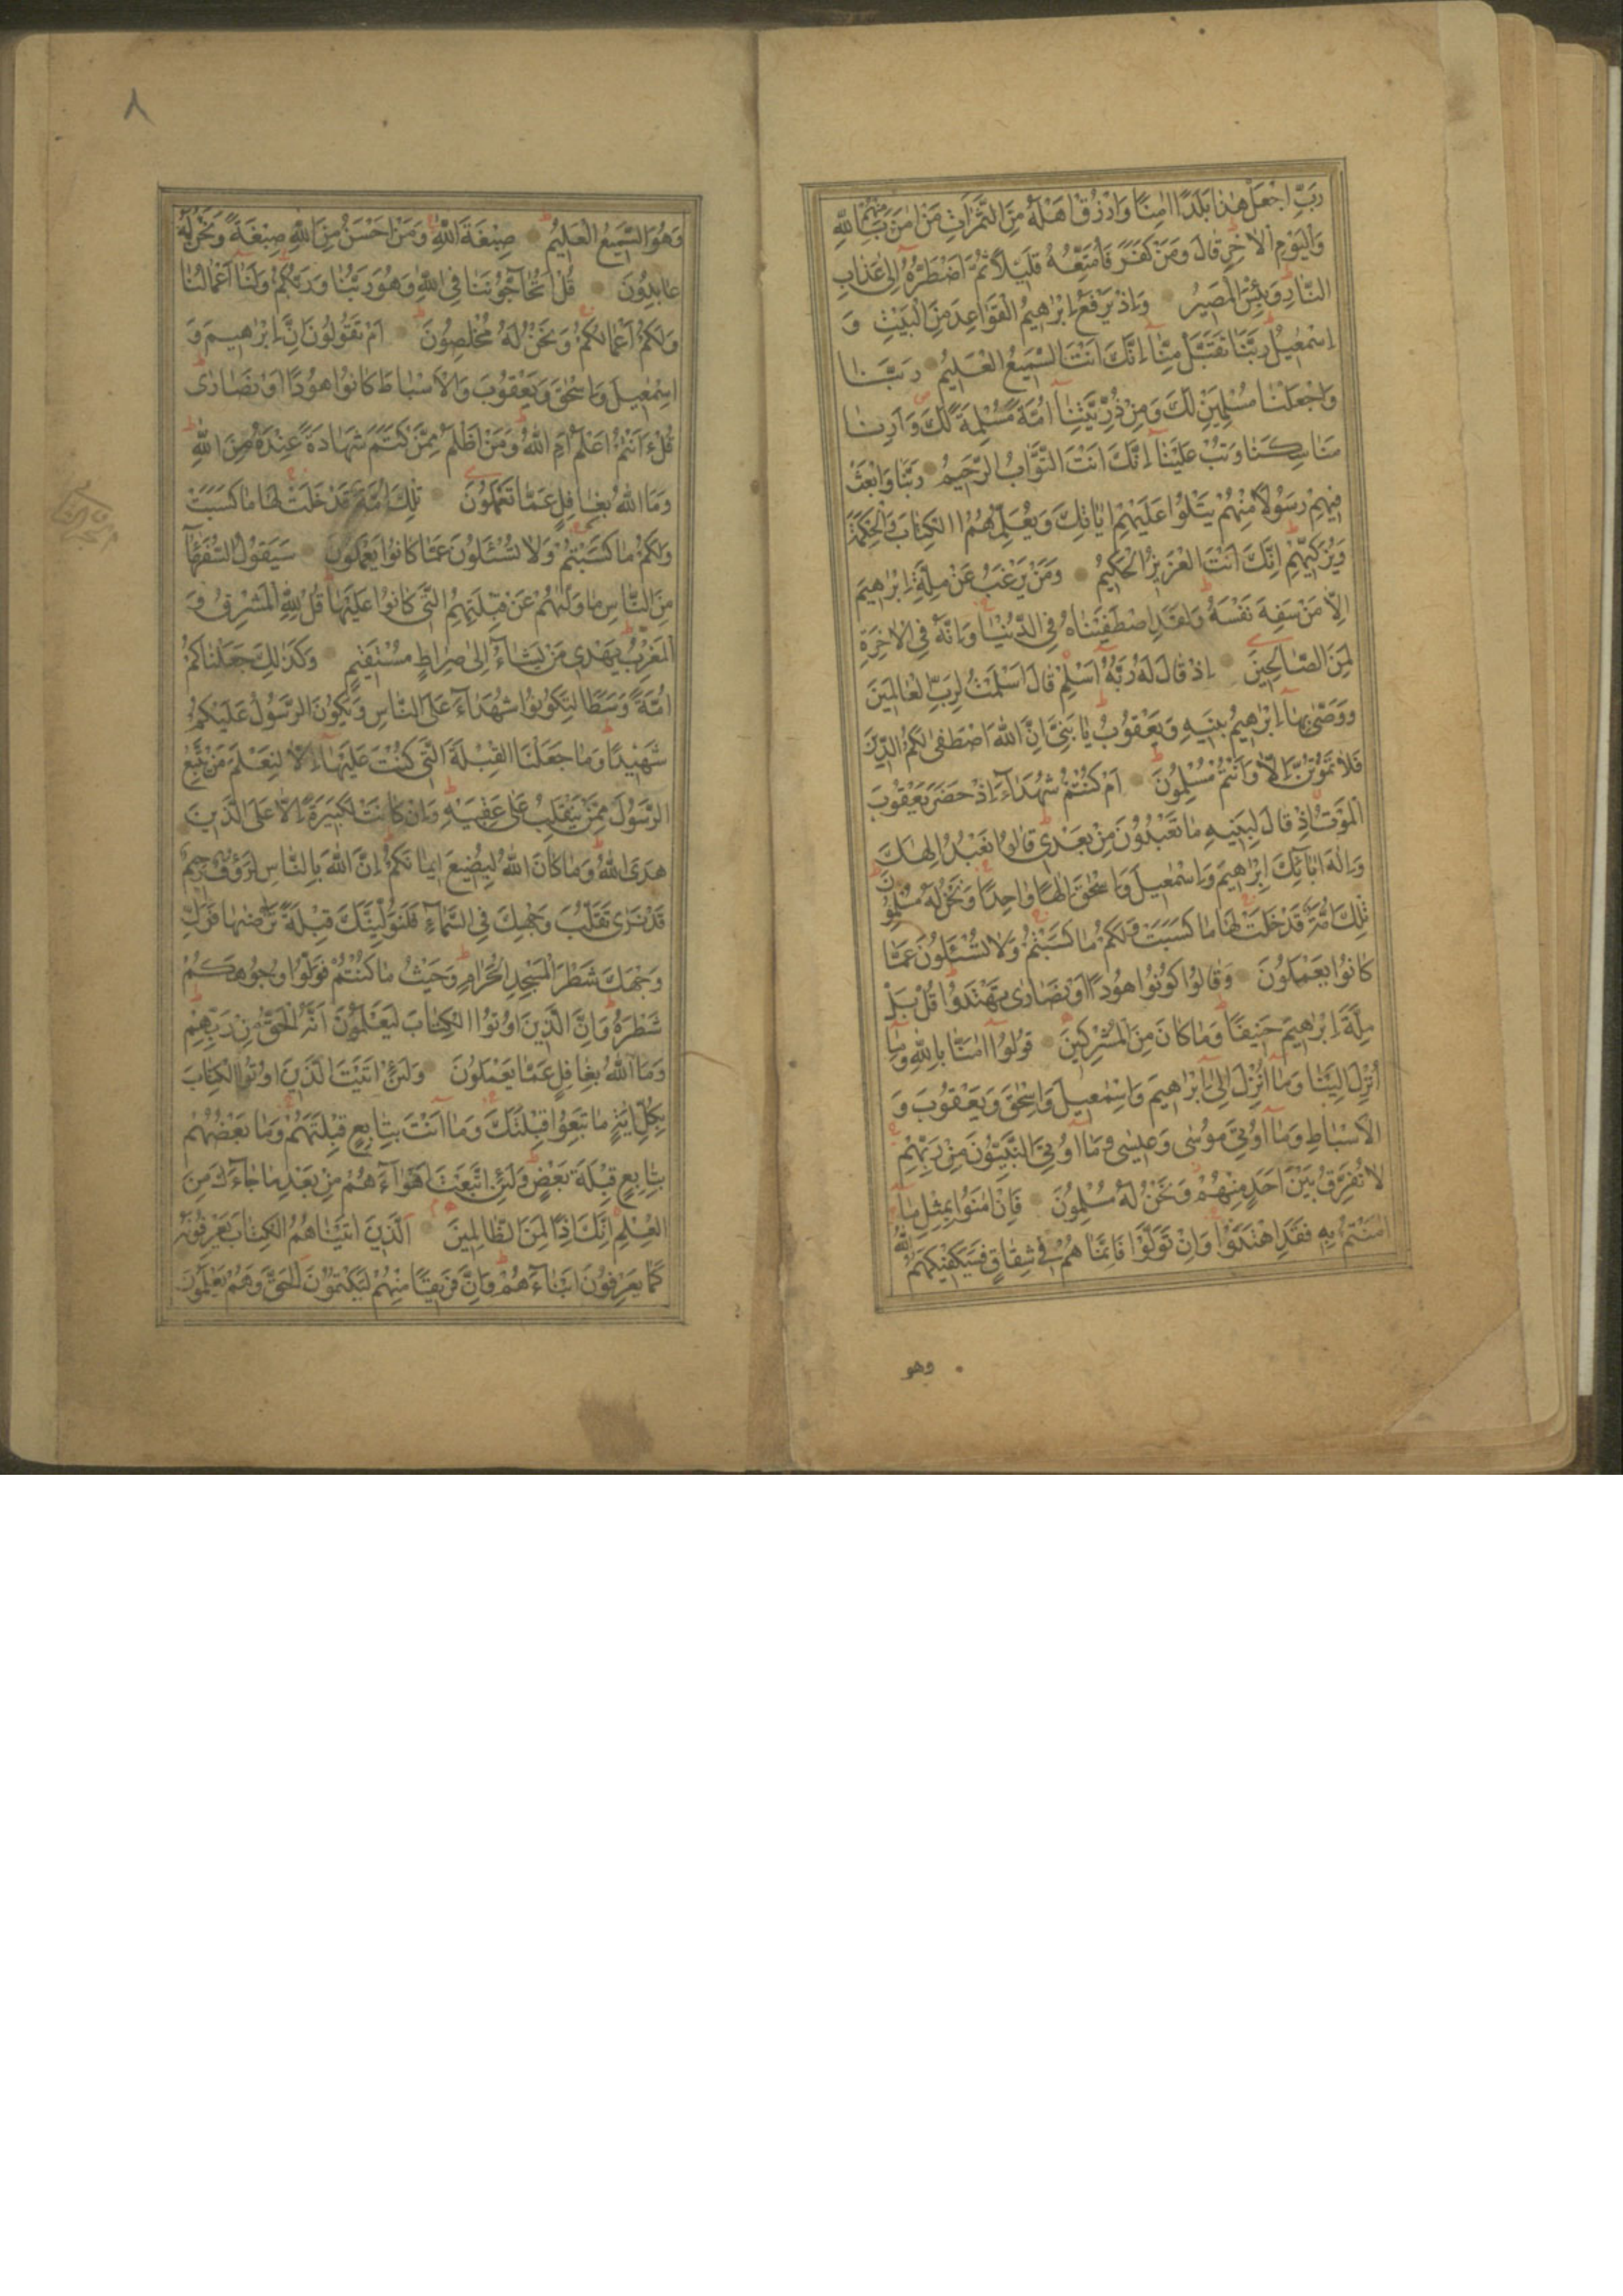 رَبِّ اجْعَلْ هٰذَا بَلَدًا اٰمِنًا وَارْزُقْ اَهْلَهُ مِنَ الثَّمَرَاتِ مَنْ اٰمَنَ مِنْهُمْ بِاللّٰهِ
وَالْيَوْمِ الْاٰخِرِ قَالَ وَمَنْ كَفَرَ فَاُمَتِّعُهُ قَلِيلًا ثُمَّ اَضْطَرُّهُ اِلٰى عَذَابِ
النَّارِ وَبِئْسَ الْمَصِيرُ وَاِذْ يَرْفَعُ اِبْرٰهِيمُ الْقَوَاعِدَ مِنَ الْبَيْتِ وَ
اِسْمٰعِيلُ رَبَّنَا تَقَبَّلْ مِنَّا اِنَّكَ اَنْتَ السَّمِيعُ الْعَلِيمُ رَبَّنَا
وَاجْعَلْنَا مُسْلِمَيْنِ لَكَ وَمِنْ ذُرِّيَّتِنَا اُمَّةً مُسْلِمَةً لَكَ وَاَرِنَا
مَنَاسِكَنَا وَتُبْ عَلَيْنَا اِنَّكَ اَنْتَ التَّوَّابُ الرَّحِيمُ رَبَّنَا وَابْعَثْ
فِيهِمْ رَسُولًا مِنْهُمْ يَتْلُوا عَلَيْهِمْ اٰيَاتِكَ وَيُعَلِّمُهُمُ الْكِتَابَ وَالْحِكْمَةَ
وَيُزَكِّيهِمْ اِنَّكَ اَنْتَ الْعَزِيزُ الْحَكِيمُ وَمَنْ يَرْغَبُ عَنْ مِلَّةِ اِبْرٰهِيمَ
اِلَّا مَنْ سَفِهَ نَفْسَهُ وَلَقَدِ اصْطَفَيْنَاهُ فِي الدُّنْيَا وَاِنَّهُ فِي الْاٰخِرَةِ
لَمِنَ الصَّالِحِينَ اِذْ قَالَ لَهُ رَبُّهُ اَسْلِمْ قَالَ اَسْلَمْتُ لِرَبِّ الْعَالَمِينَ
وَوَصّٰى بِهَا اِبْرٰهِيمُ بَنِيهِ وَيَعْقُوبُ يَا بَنِيَّ اِنَّ اللّٰهَ اصْطَفٰى لَكُمُ الدِّينَ
فَلَا تَمُوتُنَّ اِلَّا وَاَنْتُمْ مُسْلِمُونَ اَمْ كُنْتُمْ شُهَدَاءَ اِذْ حَضَرَ يَعْقُوبَ
الْمَوْتُ اِذْ قَالَ لِبَنِيهِ مَا تَعْبُدُونَ مِنْ بَعْدِي قَالُوا نَعْبُدُ اِلٰهَكَ
وَاِلٰهَ اٰبَائِكَ اِبْرٰهِيمَ وَاِسْمٰعِيلَ وَاِسْحٰقَ اِلٰهًا وَاحِدًا وَنَحْنُ لَهُ مُسْلِمُونَ
تِلْكَ اُمَّةٌ قَدْ خَلَتْ لَهَا مَا كَسَبَتْ وَلَكُمْ مَا كَسَبْتُمْ وَلَا تُسْئَلُونَ عَمَّا
كَانُوا يَعْمَلُونَ وَقَالُوا كُونُوا هُودًا اَوْ نَصَارٰى تَهْتَدُوا قُلْ بَلْ
مِلَّةَ اِبْرٰهِيمَ حَنِيفًا وَمَا كَانَ مِنَ الْمُشْرِكِينَ قُولُوا اٰمَنَّا بِاللّٰهِ وَمَا
اُنْزِلَ اِلَيْنَا وَمَا اُنْزِلَ اِلٰى اِبْرٰهِيمَ وَاِسْمٰعِيلَ وَاِسْحٰقَ وَيَعْقُوبَ وَ
الْاَسْبَاطِ وَمَا اُوتِيَ مُوسٰى وَعِيسٰى وَمَا اُوتِيَ النَّبِيُّونَ مِنْ رَبِّهِمْ
لَا نُفَرِّقُ بَيْنَ اَحَدٍ مِنْهُمْ وَنَحْنُ لَهُ مُسْلِمُونَ فَاِنْ اٰمَنُوا بِمِثْلِ مَا
اٰمَنْتُمْ بِهِ فَقَدِ اهْتَدَوْا وَاِنْ تَوَلَّوْا فَاِنَّمَا هُمْ فِي شِقَاقٍ فَسَيَكْفِيكَهُمُ اللّٰهُ
وهو
٨
وَهُوَ السَّمِيعُ الْعَلِيمُ صِبْغَةَ اللّٰهِ وَمَنْ اَحْسَنُ مِنَ اللّٰهِ صِبْغَةً وَنَحْنُ لَهُ
عَابِدُونَ قُلْ اَتُحَاجُّونَنَا فِي اللّٰهِ وَهُوَ رَبُّنَا وَرَبُّكُمْ وَلَنَا اَعْمَالُنَا
وَلَكُمْ اَعْمَالُكُمْ وَنَحْنُ لَهُ مُخْلِصُونَ اَمْ تَقُولُونَ اِنَّ اِبْرٰهِيمَ وَ
اِسْمٰعِيلَ وَاِسْحٰقَ وَيَعْقُوبَ وَالْاَسْبَاطَ كَانُوا هُودًا اَوْ نَصَارٰى
قُلْ ءَاَنْتُمْ اَعْلَمُ اَمِ اللّٰهُ وَمَنْ اَظْلَمُ مِمَّنْ كَتَمَ شَهَادَةً عِنْدَهُ مِنَ اللّٰهِ
وَمَا اللّٰهُ بِغَافِلٍ عَمَّا تَعْمَلُونَ تِلْكَ اُمَّةٌ قَدْ خَلَتْ لَهَا مَا كَسَبَتْ
وَلَكُمْ مَا كَسَبْتُمْ وَلَا تُسْئَلُونَ عَمَّا كَانُوا يَعْمَلُونَ سَيَقُولُ السُّفَهَاءُ
مِنَ النَّاسِ مَا وَلّٰيهُمْ عَنْ قِبْلَتِهِمُ الَّتِي كَانُوا عَلَيْهَا قُلْ لِلّٰهِ الْمَشْرِقُ وَ
الْمَغْرِبُ يَهْدِي مَنْ يَشَاءُ اِلٰى صِرَاطٍ مُسْتَقِيمٍ وَكَذٰلِكَ جَعَلْنَاكُمْ
اُمَّةً وَسَطًا لِتَكُونُوا شُهَدَاءَ عَلَى النَّاسِ وَيَكُونَ الرَّسُولُ عَلَيْكُمْ
شَهِيدًا وَمَا جَعَلْنَا الْقِبْلَةَ الَّتِي كُنْتَ عَلَيْهَا اِلَّا لِنَعْلَمَ مَنْ يَتَّبِعُ
الرَّسُولَ مِمَّنْ يَنْقَلِبُ عَلٰى عَقِبَيْهِ وَاِنْ كَانَتْ لَكَبِيرَةً اِلَّا عَلَى الَّذِينَ
هَدَى اللّٰهُ وَمَا كَانَ اللّٰهُ لِيُضِيعَ اِيمَانَكُمْ اِنَّ اللّٰهَ بِالنَّاسِ لَرَؤُفٌ رَحِيمٌ
قَدْ نَرٰى تَقَلُّبَ وَجْهِكَ فِي السَّمَاءِ فَلَنُوَلِّيَنَّكَ قِبْلَةً تَرْضٰيهَا فَوَلِّ
وَجْهَكَ شَطْرَ الْمَسْجِدِ الْحَرَامِ وَحَيْثُ مَا كُنْتُمْ فَوَلُّوا وُجُوهَكُمْ
شَطْرَهُ وَاِنَّ الَّذِينَ اُوتُوا الْكِتَابَ لَيَعْلَمُونَ اَنَّهُ الْحَقُّ مِنْ رَبِّهِمْ
وَمَا اللّٰهُ بِغَافِلٍ عَمَّا يَعْمَلُونَ وَلَئِنْ اَتَيْتَ الَّذِينَ اُوتُوا الْكِتَابَ
بِكُلِّ اٰيَةٍ مَا تَبِعُوا قِبْلَتَكَ وَمَا اَنْتَ بِتَابِعٍ قِبْلَتَهُمْ وَمَا بَعْضُهُمْ
بِتَابِعٍ قِبْلَةَ بَعْضٍ وَلَئِنِ اتَّبَعْتَ اَهْوَاءَهُمْ مِنْ بَعْدِ مَا جَاءَكَ مِنَ
الْعِلْمِ اِنَّكَ اِذًا لَمِنَ الظَّالِمِينَ اَلَّذِينَ اٰتَيْنَاهُمُ الْكِتَابَ يَعْرِفُونَهُ
كَمَا يَعْرِفُونَ اَبْنَاءَهُمْ وَاِنَّ فَرِيقًا مِنْهُمْ لَيَكْتُمُونَ الْحَقَّ وَهُمْ يَعْلَمُونَ